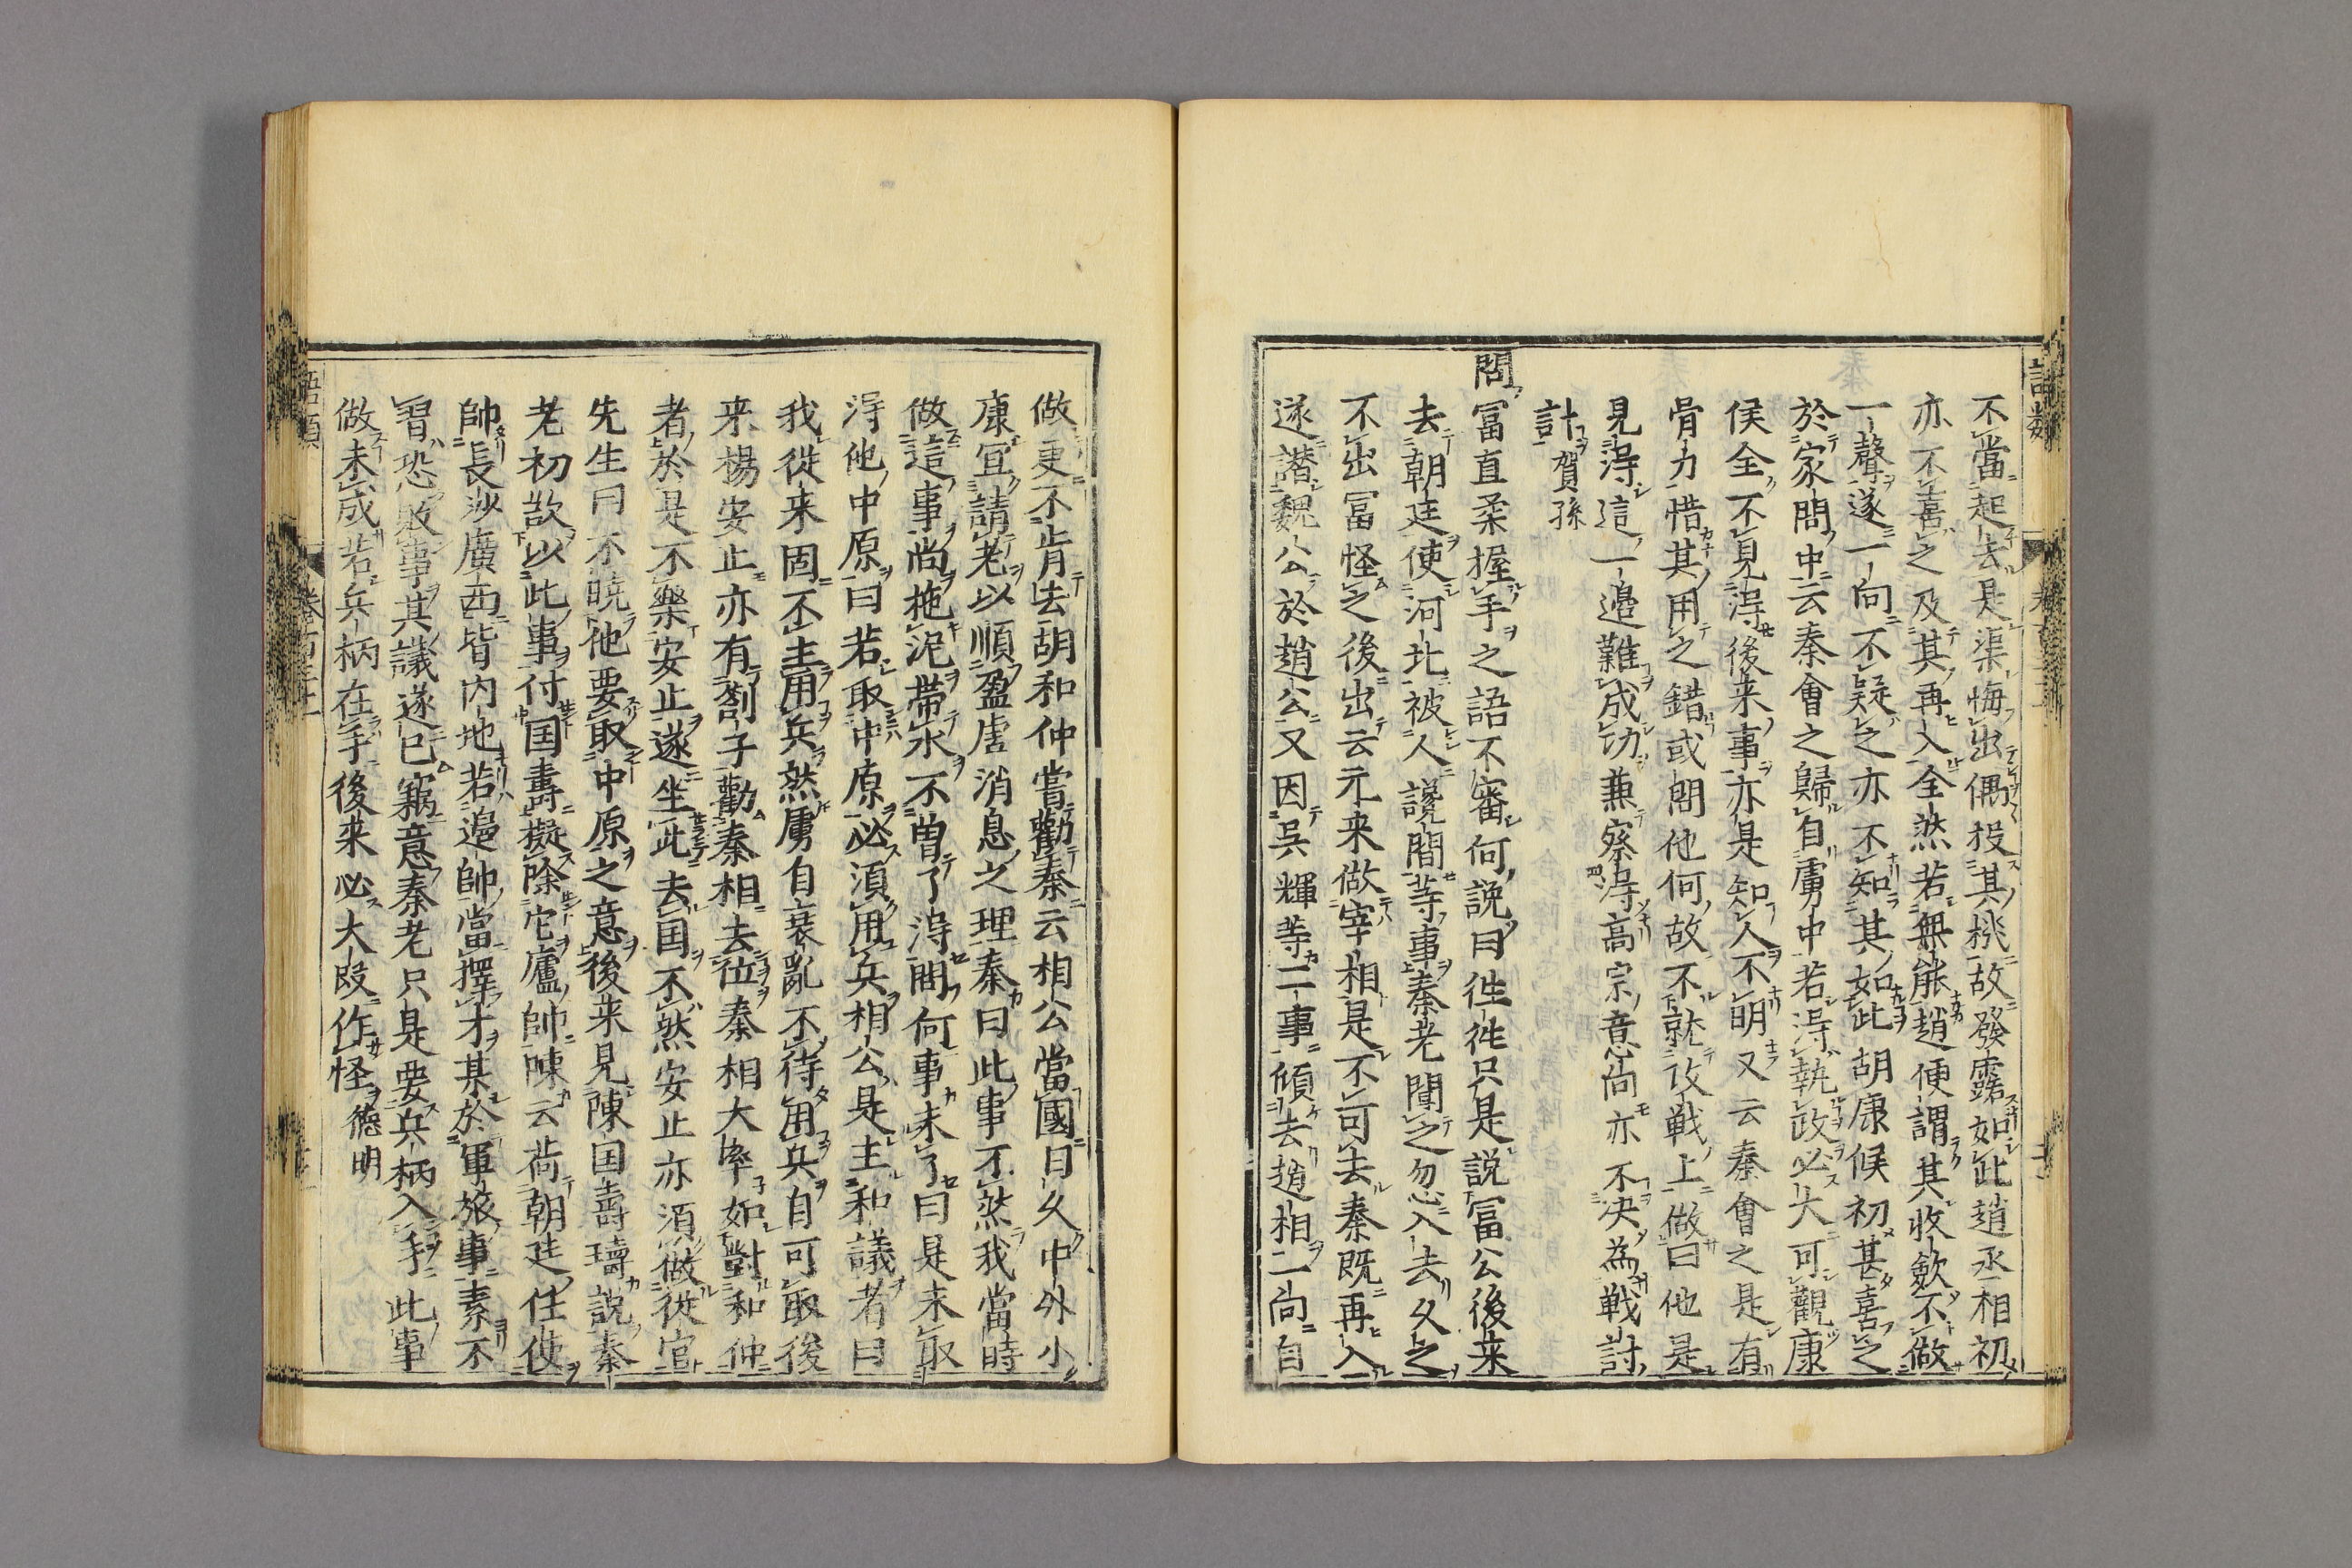 不當起去是渠悔出偶投其機故發露如此趙丞相初
亦不喜之及其再入全然若無能趙便謂其收歛不做
一聲遂一向不疑之亦不知其如此胡康候初甚喜之
於家問中云秦會之歸自虜中若淂執政必大可觀康
侯全不見淂後来事亦是知人不明又云秦會之是有
骨力惜其用之錯或問他何故不就攻戦上做曰他是
見淂這一邉難成功兼察淂高宗意向亦不决為戦討
計賀孫
問冨直柔握手之語不審何說曰徃徃只是說冨公後来
去朝廷使河北被人讒間等事秦老聞之忽入去久之
不出冨怪之後出云元来做宰相是不可去秦既再入
遂譖魏公於趙公又因吳輝等二事傾去趙相二向自
做更不肯去胡和仲嘗勸秦云相公當國日久中外小
康宜請老以順盈虗消息之理秦曰此事不然我當時
做這事尚拖泥帶水不曽了淂問何事未了曰是未取
淂他中原曰若取中原必湏用兵相公是主和議者曰
我從来固不主用兵然虜自衰亂不待用兵自可取後
来楊安止亦有劄子勸秦相去位秦相大率如對和仲
者於是不樂安止遂坐此去国不然安止亦湏做從官
先生曰不曉他要取中原之意後来見陳国壽璹說秦
老初欲以此事付国壽擬除它廬帥陳云荷朝廷任使
帥長沙廣西皆内地若邉帥當擇才某於軍旅事素不
習恐敗事其議遂已竊意秦老只是要兵柄入手此事
做未成若兵柄在手後来必大叚作怪德明
語類